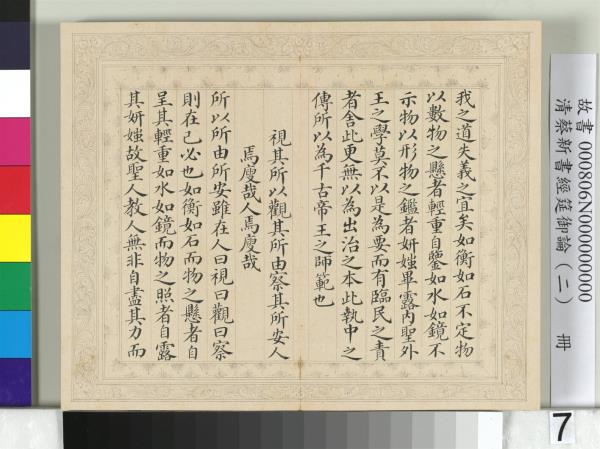 我之道失義之宜矣如衡如石不定物
以數物之懸者輕重自鑒如水如鏡不
示物以形物之鑑者妍媸畢露內聖外
王之學莫不以是為要而有臨民之責
者舍此更無以為出治之本此執中之
傳所以為千古帝王之師範也
視其所以觀其所由察其所安人
焉廋哉人焉廋哉
所以所由所安雖在人曰視曰觀曰察
則在己必也如衡如石而物之懸者自
呈其輕重如水如鏡而物之照者自露
其妍媸故聖人教人無非自盡其力而
故書 000806N000000000
清蔡新書經筵御論(二) 冊
7